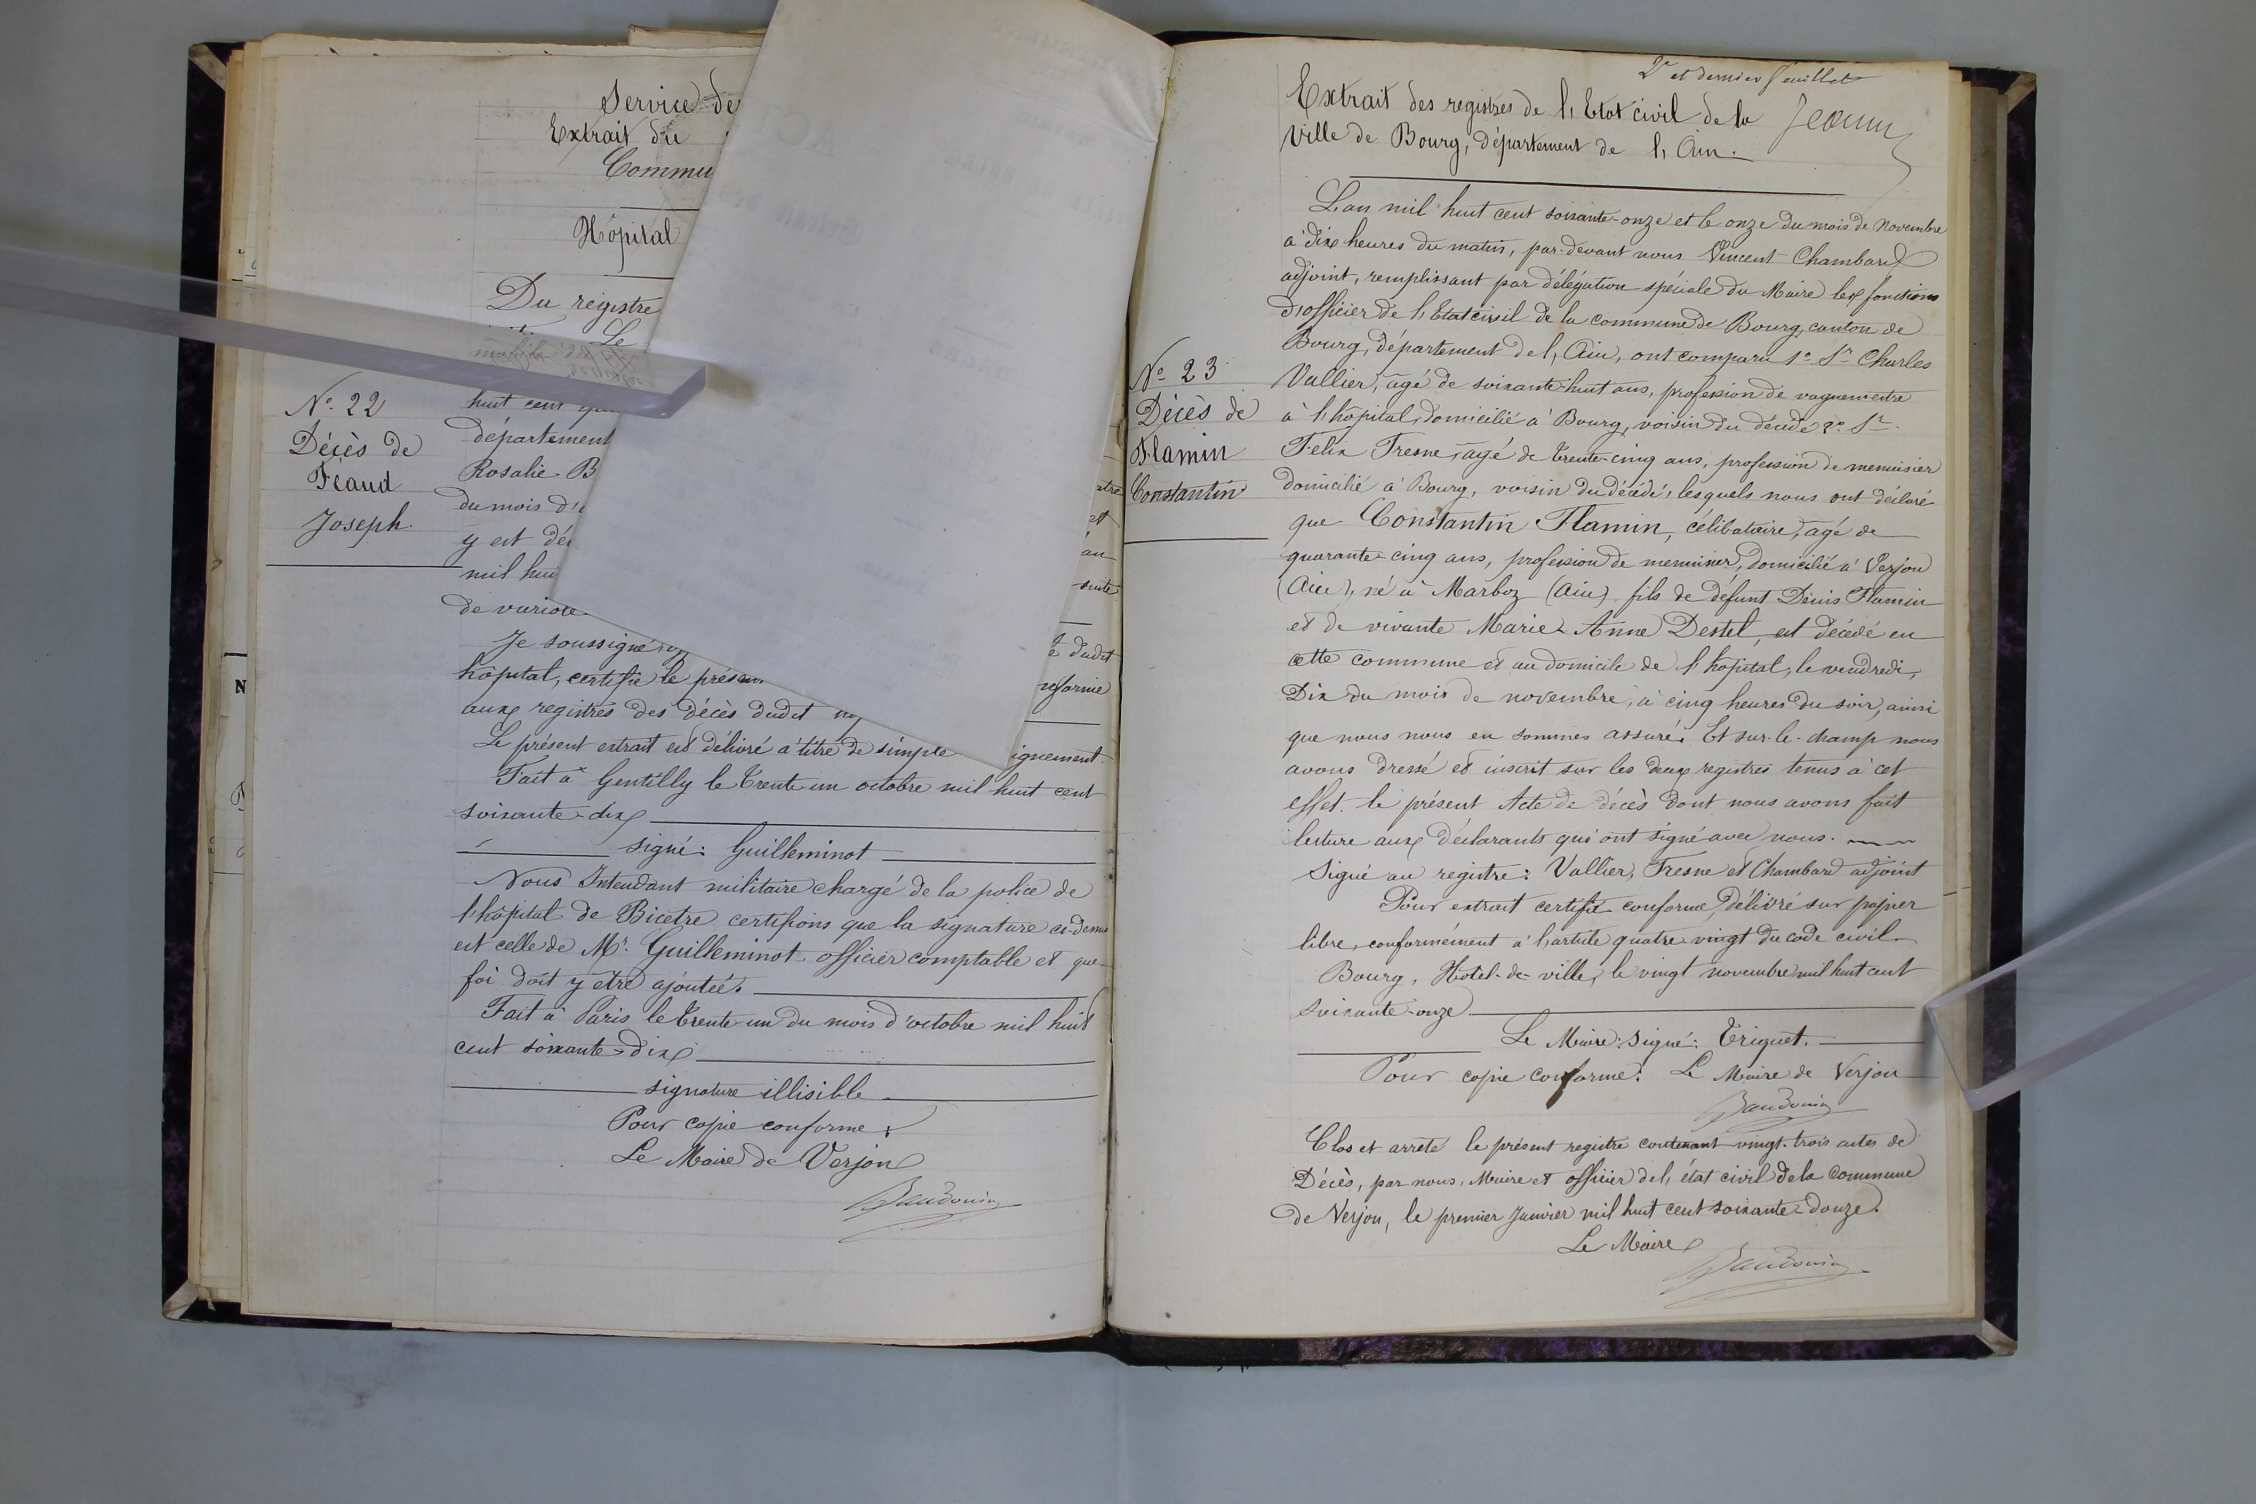 Service de
Extrait du
Commu
Hôpital
Du registre
Le
N.º 22
Décès de
Féaud
Joseph.
huit cent
département
Rosalie B
du mois d'
y est dé
mil hui
de variole
Je soussigné
hôpital, certifie le présen
aux registres des décès dudit
Le présent extrait est délivré à titre de simple
Fait à Gentilly le trente un octobre mil huit cent
soixante-dix
signé: Guilleminot
Nous Intendant militaire chargé de la police de
l'hôpital de Bicetre certifions que la signature ci-dessus
est celle de Mr. Guilleminot officier comptable et que
foi doit y être ajoutée.
Fait à Paris le trente un du mois d'octobre mil huit
cent soixante-dix
signature illisible
Pour copie conforme:
Le Maire de Verjon
Baudouin
é dudit
nforme
ignement
N
2e et dernier feuillet
Extrait des registres de l'Etat civil de la
Ville de Bourg, département de l'Ain.
L'an mil huit cent soixante-onze et le onze du mois de Novembre
à dix heures du matin, par-devant nous Vincent Chambard
adjoint, remplissant par délégation spéciale du Maire les fonctions
d'officier de l'Etat civil de la commune de Bourg, canton de
Bourg, département de l'Ain, ont comparu 1º Sr. Charles
Vallier, agé de soixante-huit ans, profession de vaguemestre
à l'hôpital, domicilié à Bourg, voisin du décédé 2º. Sr.
Felix Fresne, agé de trente-cinq ans, profession de menuisier
domicilié à Bourg, voisin du décédé, lesquels nous ont déclaré
que Constantin Flamin, célibataire, agé de
quarante-cinq ans, profession de menuisier, domicilié à Verjon
(Ain), né à Marboz (Ain) fils de défunt Denis Flamin
et de vivante Marie-Anne Destel, est décédé en
cette commune et au domicile de l'hôpital, le vendredi,
Dix du mois de novembre, à cinq heures du soir, ainsi
que nous nous en sommes assuré. Et sur-le-champ nous
avons dressé et inscrit sur les deux registres tenus à cet
effet. le présent Acte de décès dont nous avons fait
lecture aux déclarants qui ont signé avec nous.
Signé au registre: Vallier, Fresne et Chambard adjoint
Pour extrait certifié conforme, délivré sur papier
libre, conformément à l'article quatre-vingt du code civil
Bourg, Hotel-de-ville, le vingt novembre mil huit cent
soixante-onze
Le Maire: signé: Triquet.
Pour copie conforme: Le Maire de Verjon
Baudouin
Clos et arrêté le présent registre contenant vingt-trois actes de
Décès, par nous, Maire et officier de l'état civil de la Commune
de Verjon, le premier Janvier mil huit cent soixante-douze.
Le Maire
Baudouin
Nº 23
Décès de
Flamin
Constantin